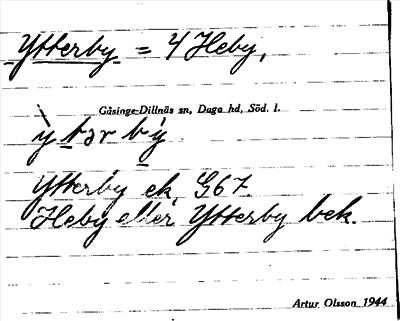 Ytterby = 4 Heby,
Gåsinge-Dillnäs sn, Daga hd, Söd. l.
ỳtər by̌
Ytterby ek, G67.
Heby eller Ytterby bek.
Artur Olsson 1944